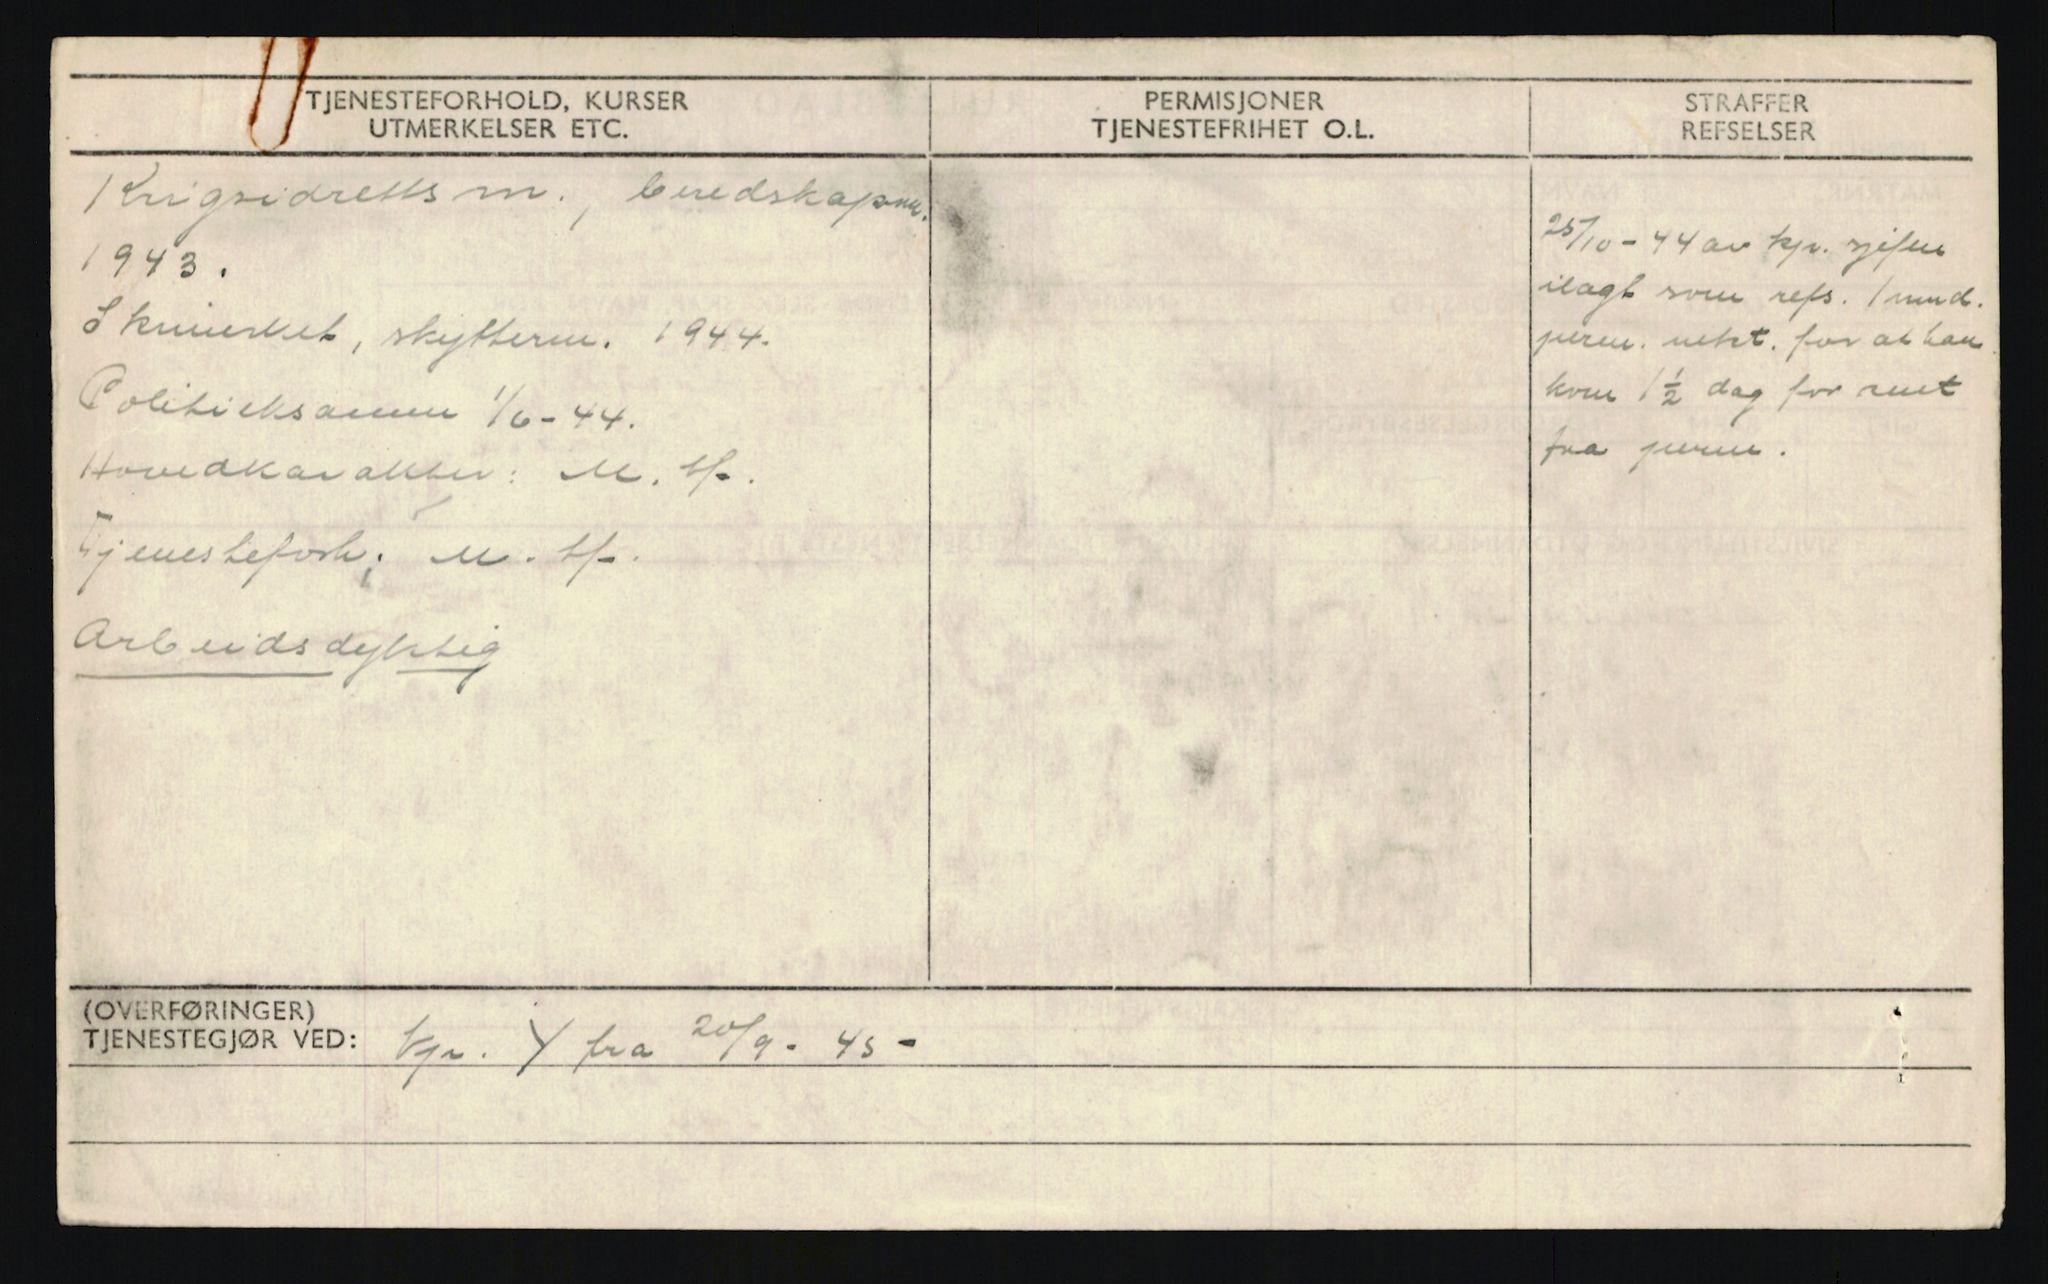 TJENESTEFORHOLD, KURSER
UTMERKELSER ETC.
PERMISJONER
TJENESTEFRIHET O.L.
STRAFFER
REFSELSER
Krigsidretts m., beredskapsm.
1943.
Skimerket, skytterm. 1944.
Politieksamen 1/6-44.
Hovedkarakter: M. tf.
Tjenesteforh: M. tf.
Arbeidsdyktig
25/10-44 av kp. sjefen
ilagt som refs. 1 mnd.
perm. nekt. for at han
kom 1½ dag for sent
fra perm.
(OVERFØRINGER)
TJENESTEGJØR VED:
kp. Y fra 20/9-45-